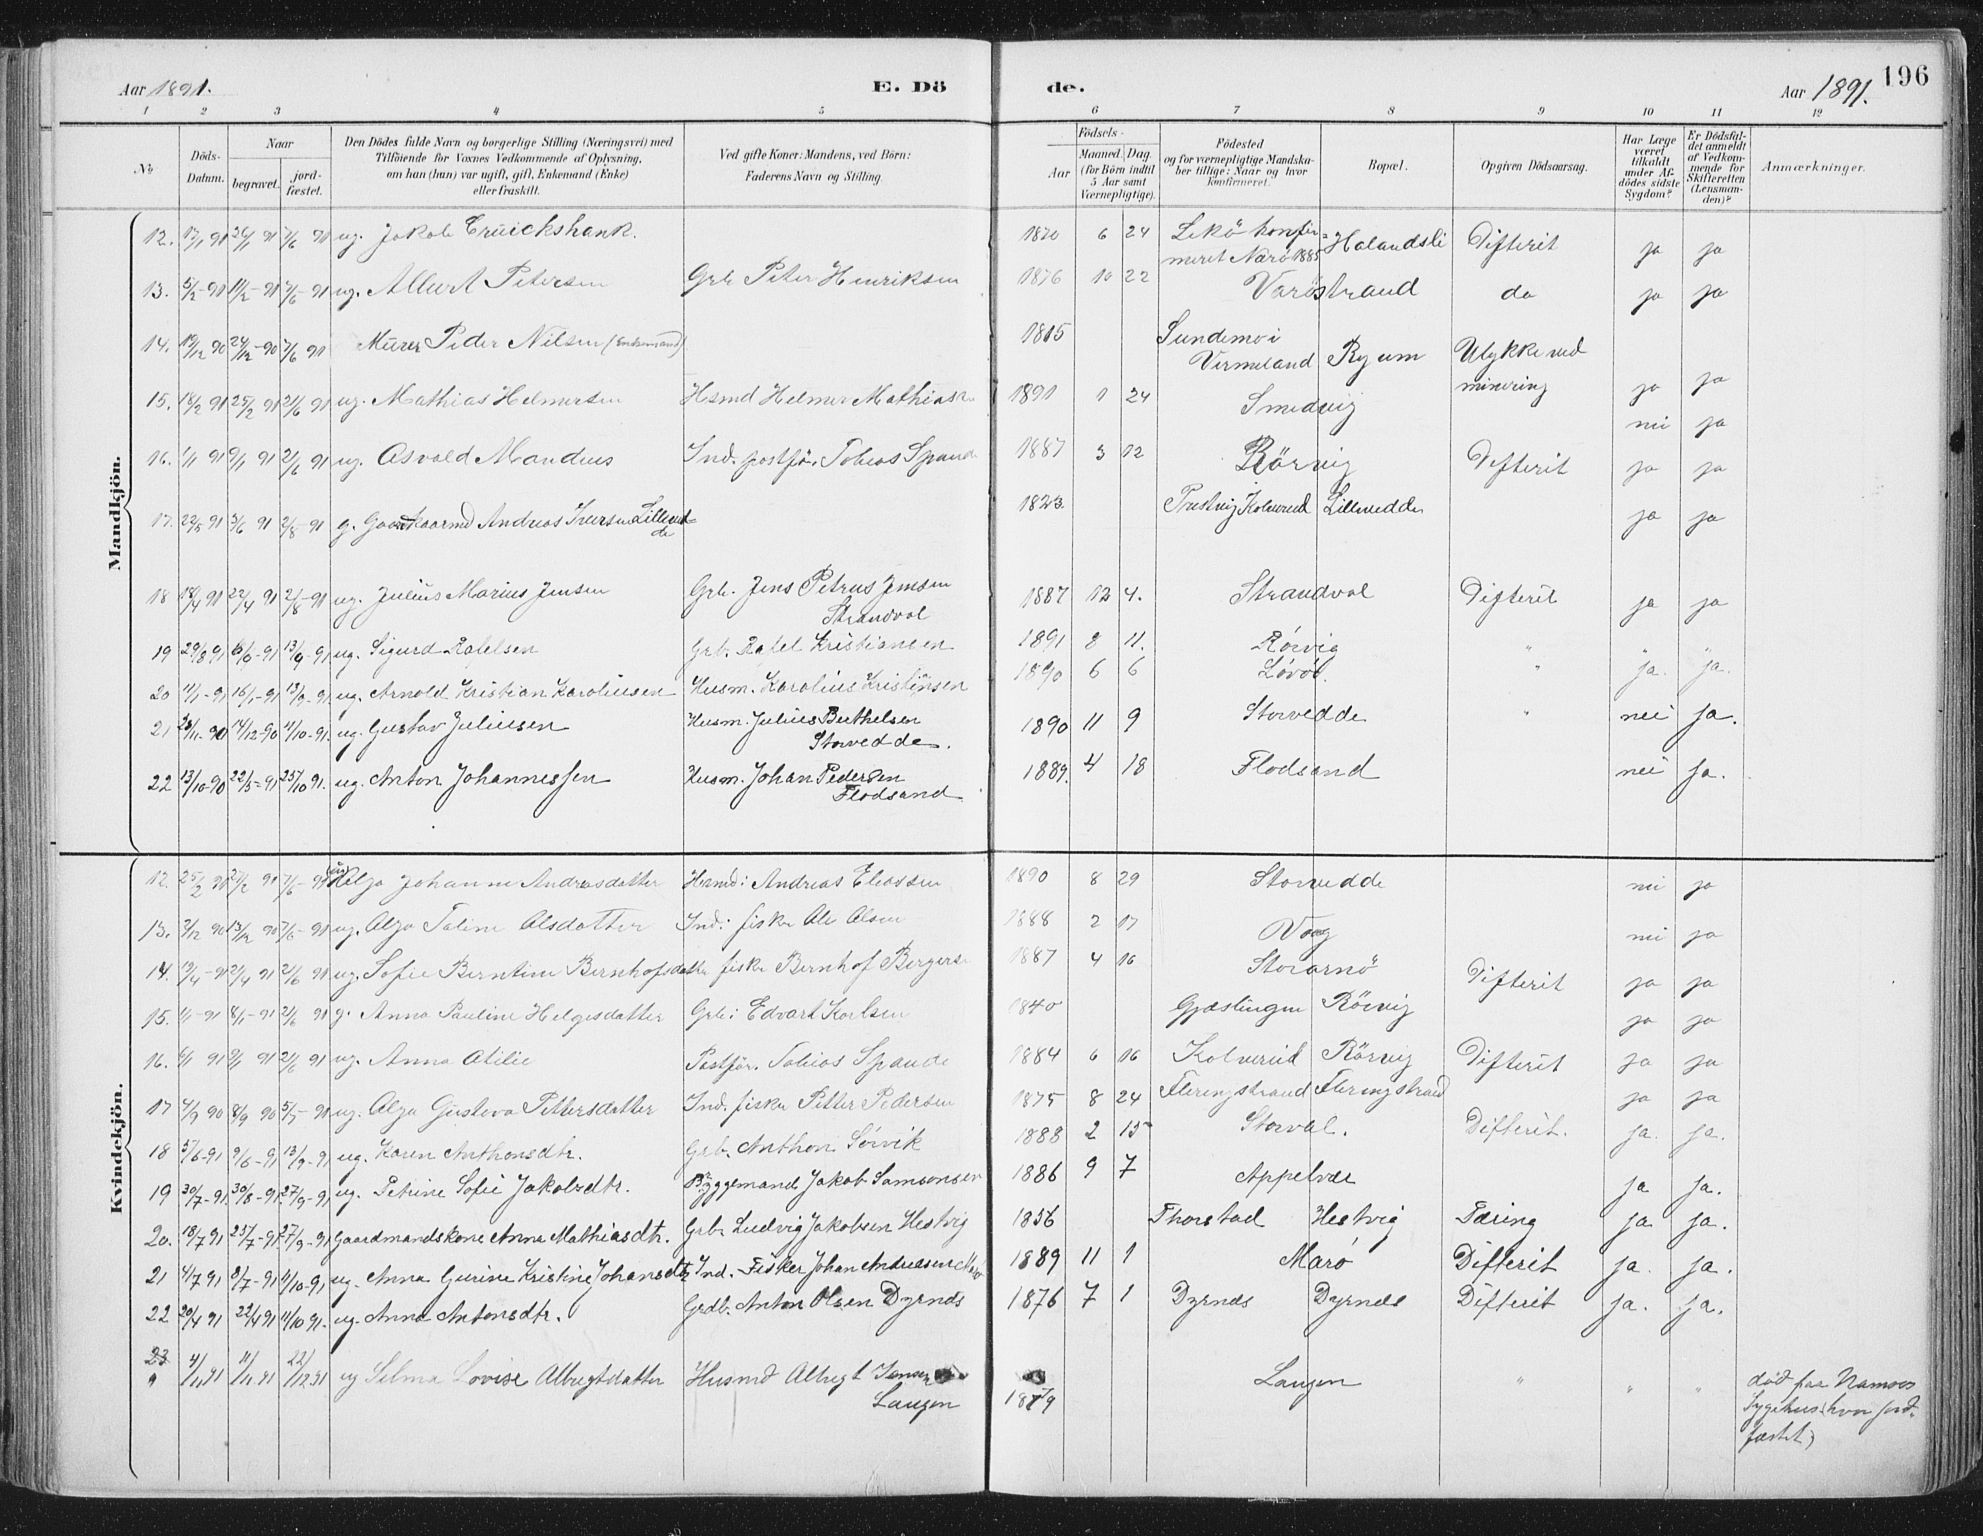 Aar 1891. E. Dö de. Aar 1891. 196
1 2 3 4 5 6 7 8 9 10 11 12
No Döds-Datum. Naar begravet. jord-fæstet. Den Dödes fulde Navn og borgerlige Stilling (Næringsvei) med Tilföiende for Voxnes Vedkommende af Oplysning, om han (hun) var ugift, gift, Enkemand (Enke) eller fraskilt. Ved gifte Koner: Mandens, ved Börn: Faderens Navn og Stilling. Födsels- Aar Maaned. Dag. (for Börn indtil 5 Aar samt Værnepligtige). Födested og for værnepligtige Mandskaber tillige: Naar og hvor konfirmeret. Bopæl. Opgiven Dödsaarsag. Har Læge været tilkaldt under Afdödes sidste Sygdom? Er Dödsfaldet anmeldt af Vedkommende for Skifteretten (Lensmanden)? Anmærkninger.
Mandkjön.
12. 17/1 91 26/1 91 7/6 91 ug. Jakob Cruickshank. 1870 6 24 Lekö konfirmeret Nærö 1885 Halandsli Difterit ja ja
13. 5/2-91 11/2-91 7/6-91 ug. Albert Petersen Grb Peter Henriksen 1876 10 22 Varöstrand do ja ja
14. 19/12 90 24/12-90 7/6 91 Murer Peder Nilsen (Enkemand) 1815 Sundemo i Vermeland Ryum Ulykke ved minering ja ja
15. 18/2 91 25/2 91 21/6 91 ug. Mathias Helmersen Hsmd Helmer Mathiasen 1891 1 24 Smedvig nei ja
16. 1/1 91 9/1 91 21/6 91 ug. Asvald Mandius Ind. postför. Tobias Spande 1887 3 12 Rörvig Difterit ja ja
17. 22/5 91 3/6 91 2/8 91 g. Andreas Iversen Lillevedde 1823 Kolvereid Lillevedde ja ja
18 18/4 91 22/4 91 2/8-91 ug. Julius Marius Jensen Grb. Jens Petrus Jensen Strandval 1887 12 4. Strandval Difterit ja ja
19 29/8 91 6/9-91 13/9-91 ug. Sigurd Rafelsen Grb. Rafel Kristiansen 1891 8 11. Rörvig " " ja. ja.
20 11/1-91 16/1-91 13/9-91 ug. Arnold Kristian Karoliusen Husm. Karolius Kristinsen 1890 6 6 Lövöl. "
21 14/12-90 11/10-91. ug. Gustav Juliusen Husm. Julius Berthelsen Storvedde. 1890 11 9 Storvedde " nei ja.
22 13/10-90 22/5-91 25/10 91. ug. Anton Johannessen Husm. Johan Pedersen Flodsand 1889. 4 18 Flodsand nei ja.
Kvindekjön.
12. 25/2 91 7/6-91 Johanne Andreasdatter Hsmd: Andreas Eliassen 1890 8 29 Storvedde nei ja
13. 7/12 90 13/12 90 7/6-91 ug. Olga Taline Olsdatter Ind: fisker Ole Olsen 1888 2 17 Vaag nei ja
14. 19/4-91 2/4 91 21/6 91 ug. Sofie Berntine Bernhofsdatter fisker Bernhof Bergers 1887 4 16 Storarnö Difterit ja ja
15. 1/1-91 8/1-91 21/6 91 g. Anna Pauline Helgesdatter Grb: Edvart Karlsen 1840 Gjæslingen Rörvig ja ja
16. 6/1 91 9/1 91 21/6 91 ug. Anna Otilie Postför. Tobias Spande 1884 6 16 Kolvereid Rörvig Difterit ja ja
17 4/9 90 8/9 90 5/7-91 ug. Olga Gustava Pettersdatter Ind. fisker Petter Pedersen 1875 8 24 Fleringstrand Fleringstrand ja ja
18 5/6-91 9/6-91 13/9-91 ug. Karen Anthonsdtr. Grb. Anthon Sörvik 1888 2 15 Storval. Difterit. ja. ja.
19 30/7-91. 30/8-91. 27/9-91 ug. Petrine Sofie Jakobsdtr. Byggemand Jakob Samsonsen 1886 9 7 Appelvær ja ja.
20. 18/7 91 25/7-91 27/9-91 Gaardmandskone Anna Mathiasdtr. Grb. Ludvig Jakobsen Hestvig 1856 Thorstad Hestvig Tæring ja ja.
21 4/7 91 8/7-91 11/10-91 ug. Anna Gurine Kristine Johansdtr Ind. Fisker Johan Andreasen Marö 1889 11 1 Marö Difterit ja. ja.
22 20/4 91 22/4 91 11/10 91. ug. Anna Antonsdtr. Grdb. Anton Olsen Dyrnes 1876 7 1 Dyrnes Dyrnes Difterit ja. ja.
23 4/11 91 11/11 91 22/12 91 ug Selma Lovise Albregtdatter Husmd Albregt Jensen Laugen 1879 Laugen " " " död paa Namsos Sygehus (hvor jordfæstet)